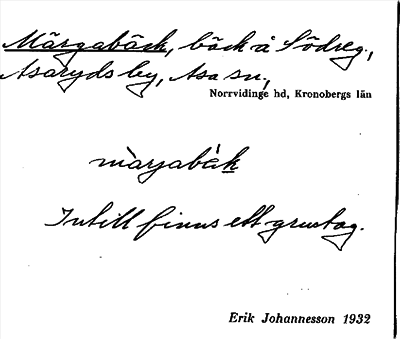 Märgabäck, bäck å Södreg.,
Asaryds by, Asa sn,
Norrvidinge hd, Kronobergs län
màrjabäk
Intill finns ett grustag.
Erik Johannesson 1932